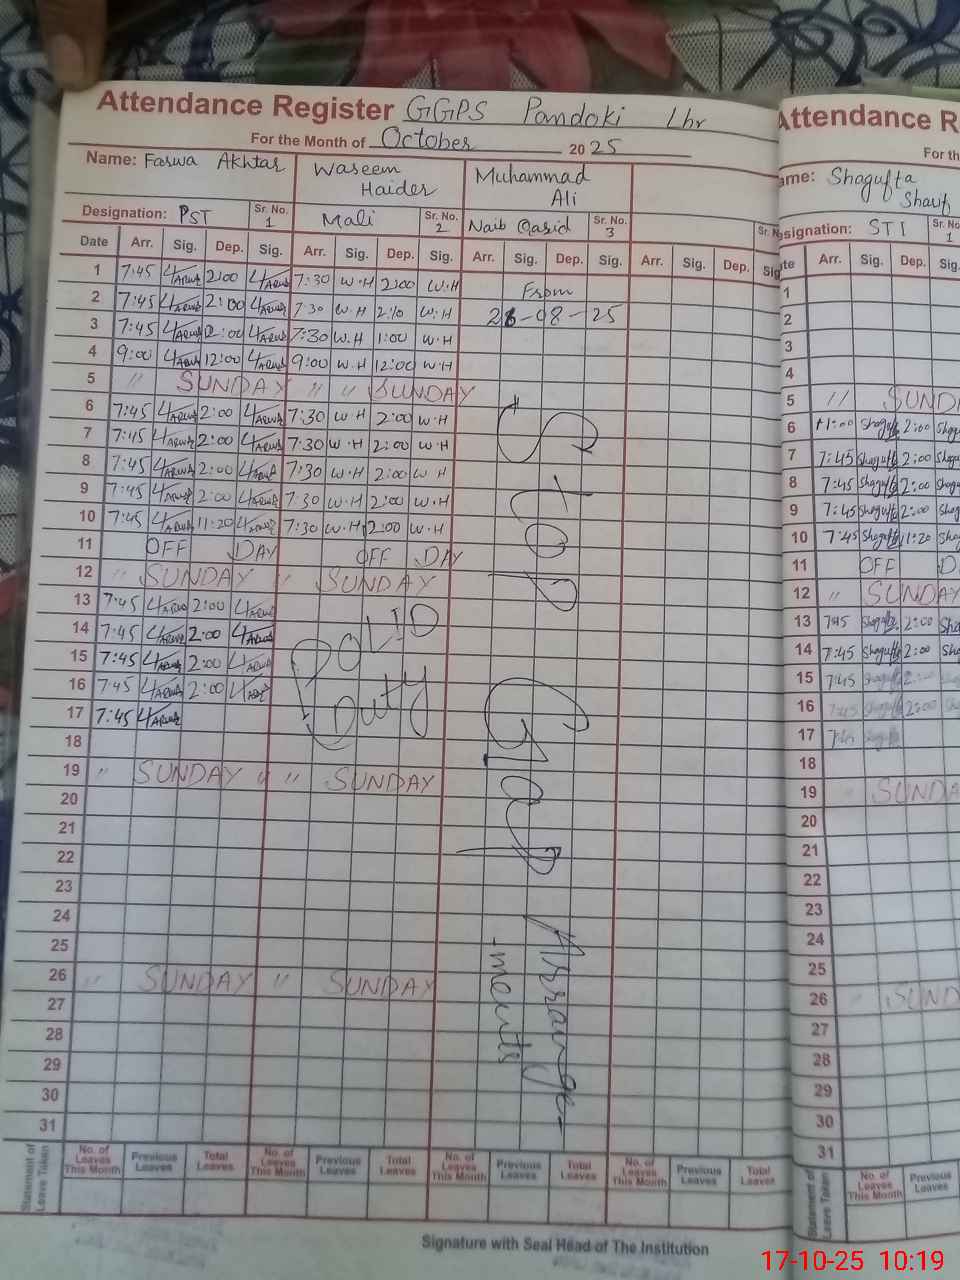 Attendance Register GGPS Pandoki Lhr
For the Month of October 2025
Name: Farwa Akhtar Waseem Haider Muhammad Ali
Designation: PST Sr. No. 1 Mali Sr. No. 2 Naib Qasid Sr. No. 3 Sr. No.
Date Arr. Sig. Dep. Sig. Arr. Sig. Dep. Sig. Arr. Sig. Dep. Sig. Arr. Sig. Dep. Sig
1 7:45 Farwa 2:00 Farwa 7:30 W.H 2:00 W.H From
2 7:45 Farwa 2:00 Farwa 7:30 W.H 2:10 W.H 28-08-25
3 7:45 Farwa 12:00 Farwa 7:30 W.H 1:00 W.H
4 9:00 Farwa 12:00 Farwa 9:00 W.H 12:00 W.H
5 " SUNDAY " " SUNDAY
6 7:45 Farwa 2:00 Farwa 7:30 W.H 2:00 W.H
7 7:45 Farwa 2:00 Farwa 7:30 W.H 2:00 W.H
8 7:45 Farwa 2:00 Farwa 7:30 W.H 2:00 W.H
9 7:45 Farwa 2:00 Farwa 7:30 W.H 2:00 W.H
10 7:45 Farwa 11:20 Farwa 7:30 W.H 2:00 W.H
11 OFF DAY OFF DAY
12 " SUNDAY " SUNDAY
13 7:45 Farwa 2:00 Farwa
14 7:45 Farwa 2:00 Farwa
15 7:45 Farwa 2:00 Farwa
16 7:45 Farwa 2:00 Farwa
17 7:45 Farwa
18
19 " SUNDAY " " SUNDAY
20
21
22
23
24
25
26 " SUNDAY " SUNDAY
27
28
29
30
31
POLIO
Duty
Stop
Gap
Arrange-
-ments
Statement of Leave Taken
No. of Leaves This Month Previous Leaves Total Leaves No. of Leaves This Month Previous Leaves Total Leaves No. of Leaves This Month Previous Leaves Total Leaves No. of Leaves This Month Previous Leaves Total Leaves
Signature with Seal Head of The Institution
Attendance R
For th
ame: Shagufta Sharif
esignation: STI Sr. No. 1
te Arr. Sig. Dep. Sig.
1
2
3
4
5 " SUND
6 11:00 Shagufta 2:00 Shagu
7 7:45 Shagufta 2:00 Shagu
8 7:45 Shagufta 2:00 Shagu
9 7:45 Shagufta 2:00 Shagu
10 7:45 Shagufta 11:20 Shag
11 OFF D
12 " SUNDAY
13 7:45 Shagufta 2:00 Sha
14 7:45 Shagufta 2:00 Sha
15 7:45 Shagufta 2:00
16 7:45 Shagufta 2:00
17
18
19 " SUNDA
20
21
22
23
24
25
26 " SUND
27
28
29
30
31
Statement of Leave Taken
No. of Leaves This Month Previous Leaves
17-10-25 10:19